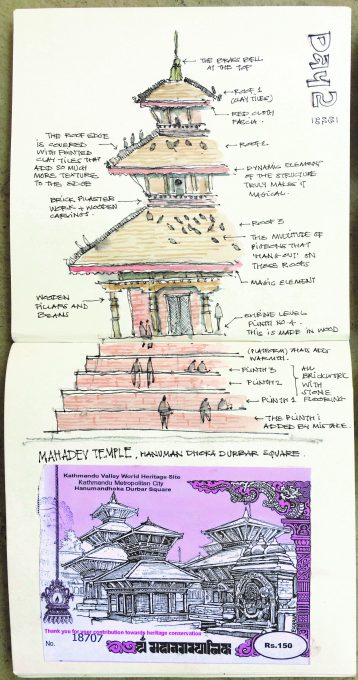 Day 2
THE BRASS BELL
AT THE TOP
ROOF 1
(CLAY TILES)
RED CLOTH
FALCIA.
THE ROOF EDGE
IS COVERED
WITH POINTED
CLAY TILES THAT
ADD SO MUCH
MORE TEXTURE
TO THE EDGE
ROOF 2
DYNAMIC ELEMENT
OF THE STRUCTURE
TRULY MAKES IT
MAGICAL.
BRICK PILASTER
WORK + WOODEN
CARVINGS.
ROOF 3
THE MULTITUDE OF
PIGEONS THAT
'HANG OUT' ON
THOSE ROOFS
MAGIC ELEMENT
WOODEN
PILLARS AND
BEAMS
SHRINE LEVEL
PLINTH NO 4.
THIS IS MADE IN WOOD
(PLATFORM) THATS ADDS
WARMTH.
PLINTH 3
PLINTH 2
PLINTH 1
ALL
BRICKWORK
WITH
STONE
FLOORING
THE PLINTH I
ADDED BY MISTAKE.
MAHADEV TEMPLE, HANUMAN DHOKA DURBAR SQUARE.
Kathmandu Valley World Heritage Site
Kathmandu Metropolitan City
Hanumandhoka Durbar Square
Thank you for your contribution towards heritage conservation
No. 18707
Rs.150